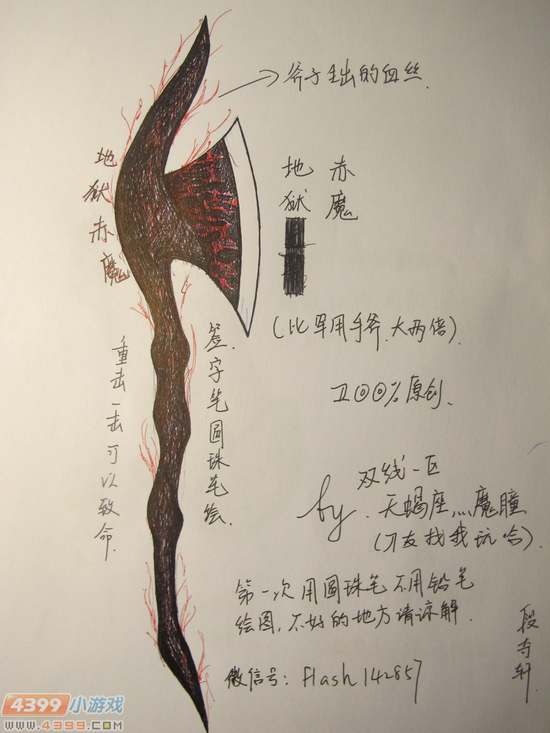 斧子生出的血丝
地狱赤魔
地狱
赤魔
(比军用手斧.大两倍).
重击一击可以致命.
签字笔圆珠笔绘.
卫00%原创.
双线一区
by.天蝎座灬魔瞳
(刀友找我玩哈).
第一次用圆珠笔不用铅笔
绘图,不好的地方请谅解.
微信号: flash142857
4399小游戏
www.4399.com